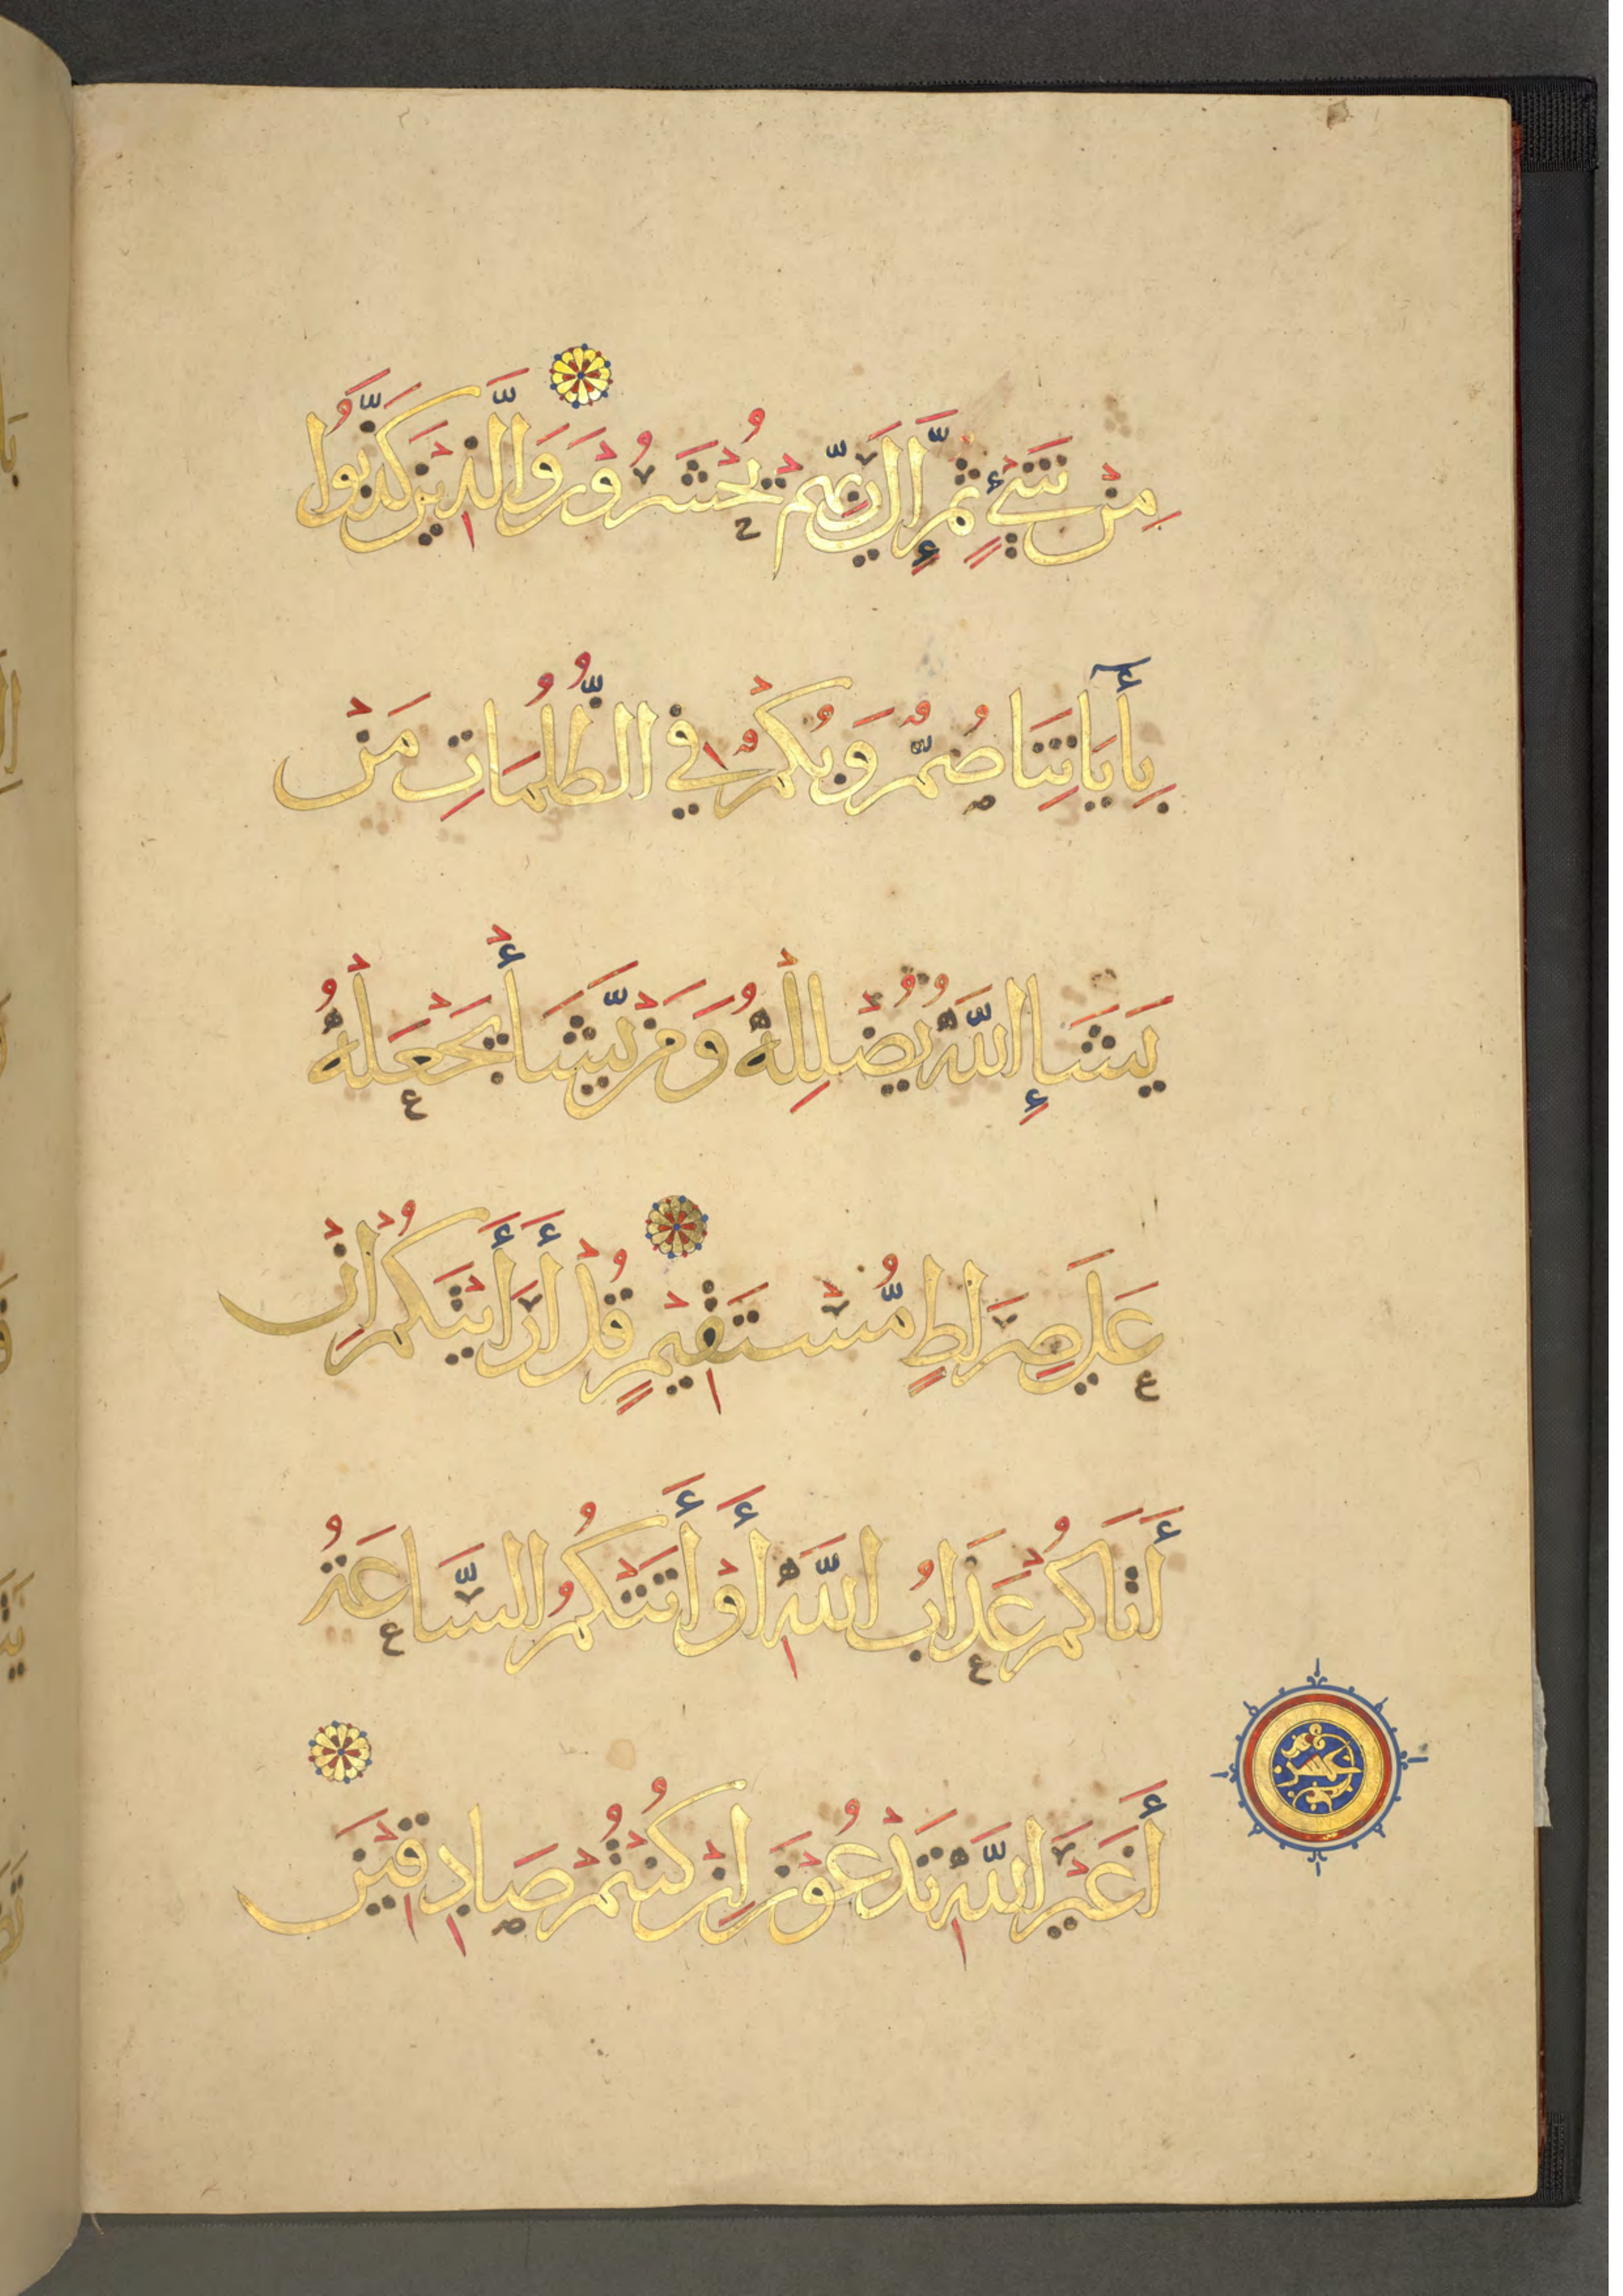 مِنْ شَيْءٍ ثُمَّ إِلَى رَبِّهِمْ يُحْشَرُونَ وَالَّذِينَ كَذَّبُوا
بِأَيَاتِنَا صُمٌّ وَبُكْمٌ فِي الظُّلُمَاتِ مَنْ
يَشَإِ اللَّهُ يُضْلِلْهُ وَمَنْ يَّشَأْ يَجْعَلْهُ
عَلَى صِرَاطٍ مُّسْتَقِيمٍ قُلْ أَرَأَيْتَكُمْ إِنْ
أَتَاكُمْ عَذَابُ اللَّهِ أَوْ أَتَتْكُمُ السَّاعَةُ
أَغَيْرَ اللَّهِ تَدْعُونَ إِنْ كُنْتُمْ صَادِقِينَ